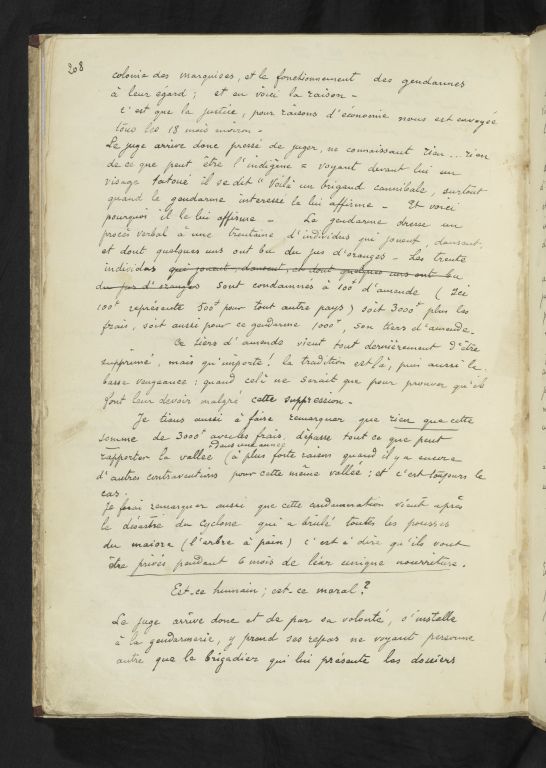 208
colonie des marquises, et le fonctionnement des gendarmes
à leur égard ; et en voici la raison -
C'est que la justice, pour raisons d'économie nous est envoyée
tous les 18 mois environ -
Le juge arrive donc pressé de juger, ne connaissant rien... rien
de ce que peut être l'indigène = voyant devant lui un
visage tatoué il se dit " Voilà un brigand cannibale, surtout
quand le gendarme interessé le lui affirme - Et voici
pourquoi il le lui affirme - Le gendarme dresse un
procès verbal à une trentaine d'individus qui jouent, dansent,
et dont quelques uns ont bu du jus d'oranges - Les trente
individus qui jouent, dansent, et dont quelques uns ont bu
du jus d'oranges sont condamnés à 100f d'amende ( Ici
100f représente 500f pour tout autre pays ) soit 3000f plus les
frais, soit aussi pour ce gendarme 1000f, son tiers d'amende -
Ce tiers d'amende vient tout dernièrement d'être
supprimé, mais qu'importe ! la tradition est là, puis aussi la
basse vengeance ; quand celà ne serait que pour prouver qu'ils
font leur devoir malgré cette suppression -
Je tiens aussi à faire remarquer que rien que cette
somme de 3000f avec les frais, dépasse tout ce que peut
Dans une année
rapporter la vallée (à plus forte raison quand il y a encore
d'autres contraventions pour cette même vallée : et c'est toujours le
cas.
Je ferai remarquer aussi que cette condamnation vient après
le désastre du Cyclone qui a brulé toutes les pousses
du maiore (l'arbre à pain) c'est à dire qu'ils vont
être privés pendant 6 mois de leur unique nourriture.
Est-ce humain ; est-ce moral ?
Le juge arrive donc et de par sa volonté, s'installe
à la gendarmerie, y prend ses repas ne voyant personne
autre que le brigadier qui lui présente les dossiers